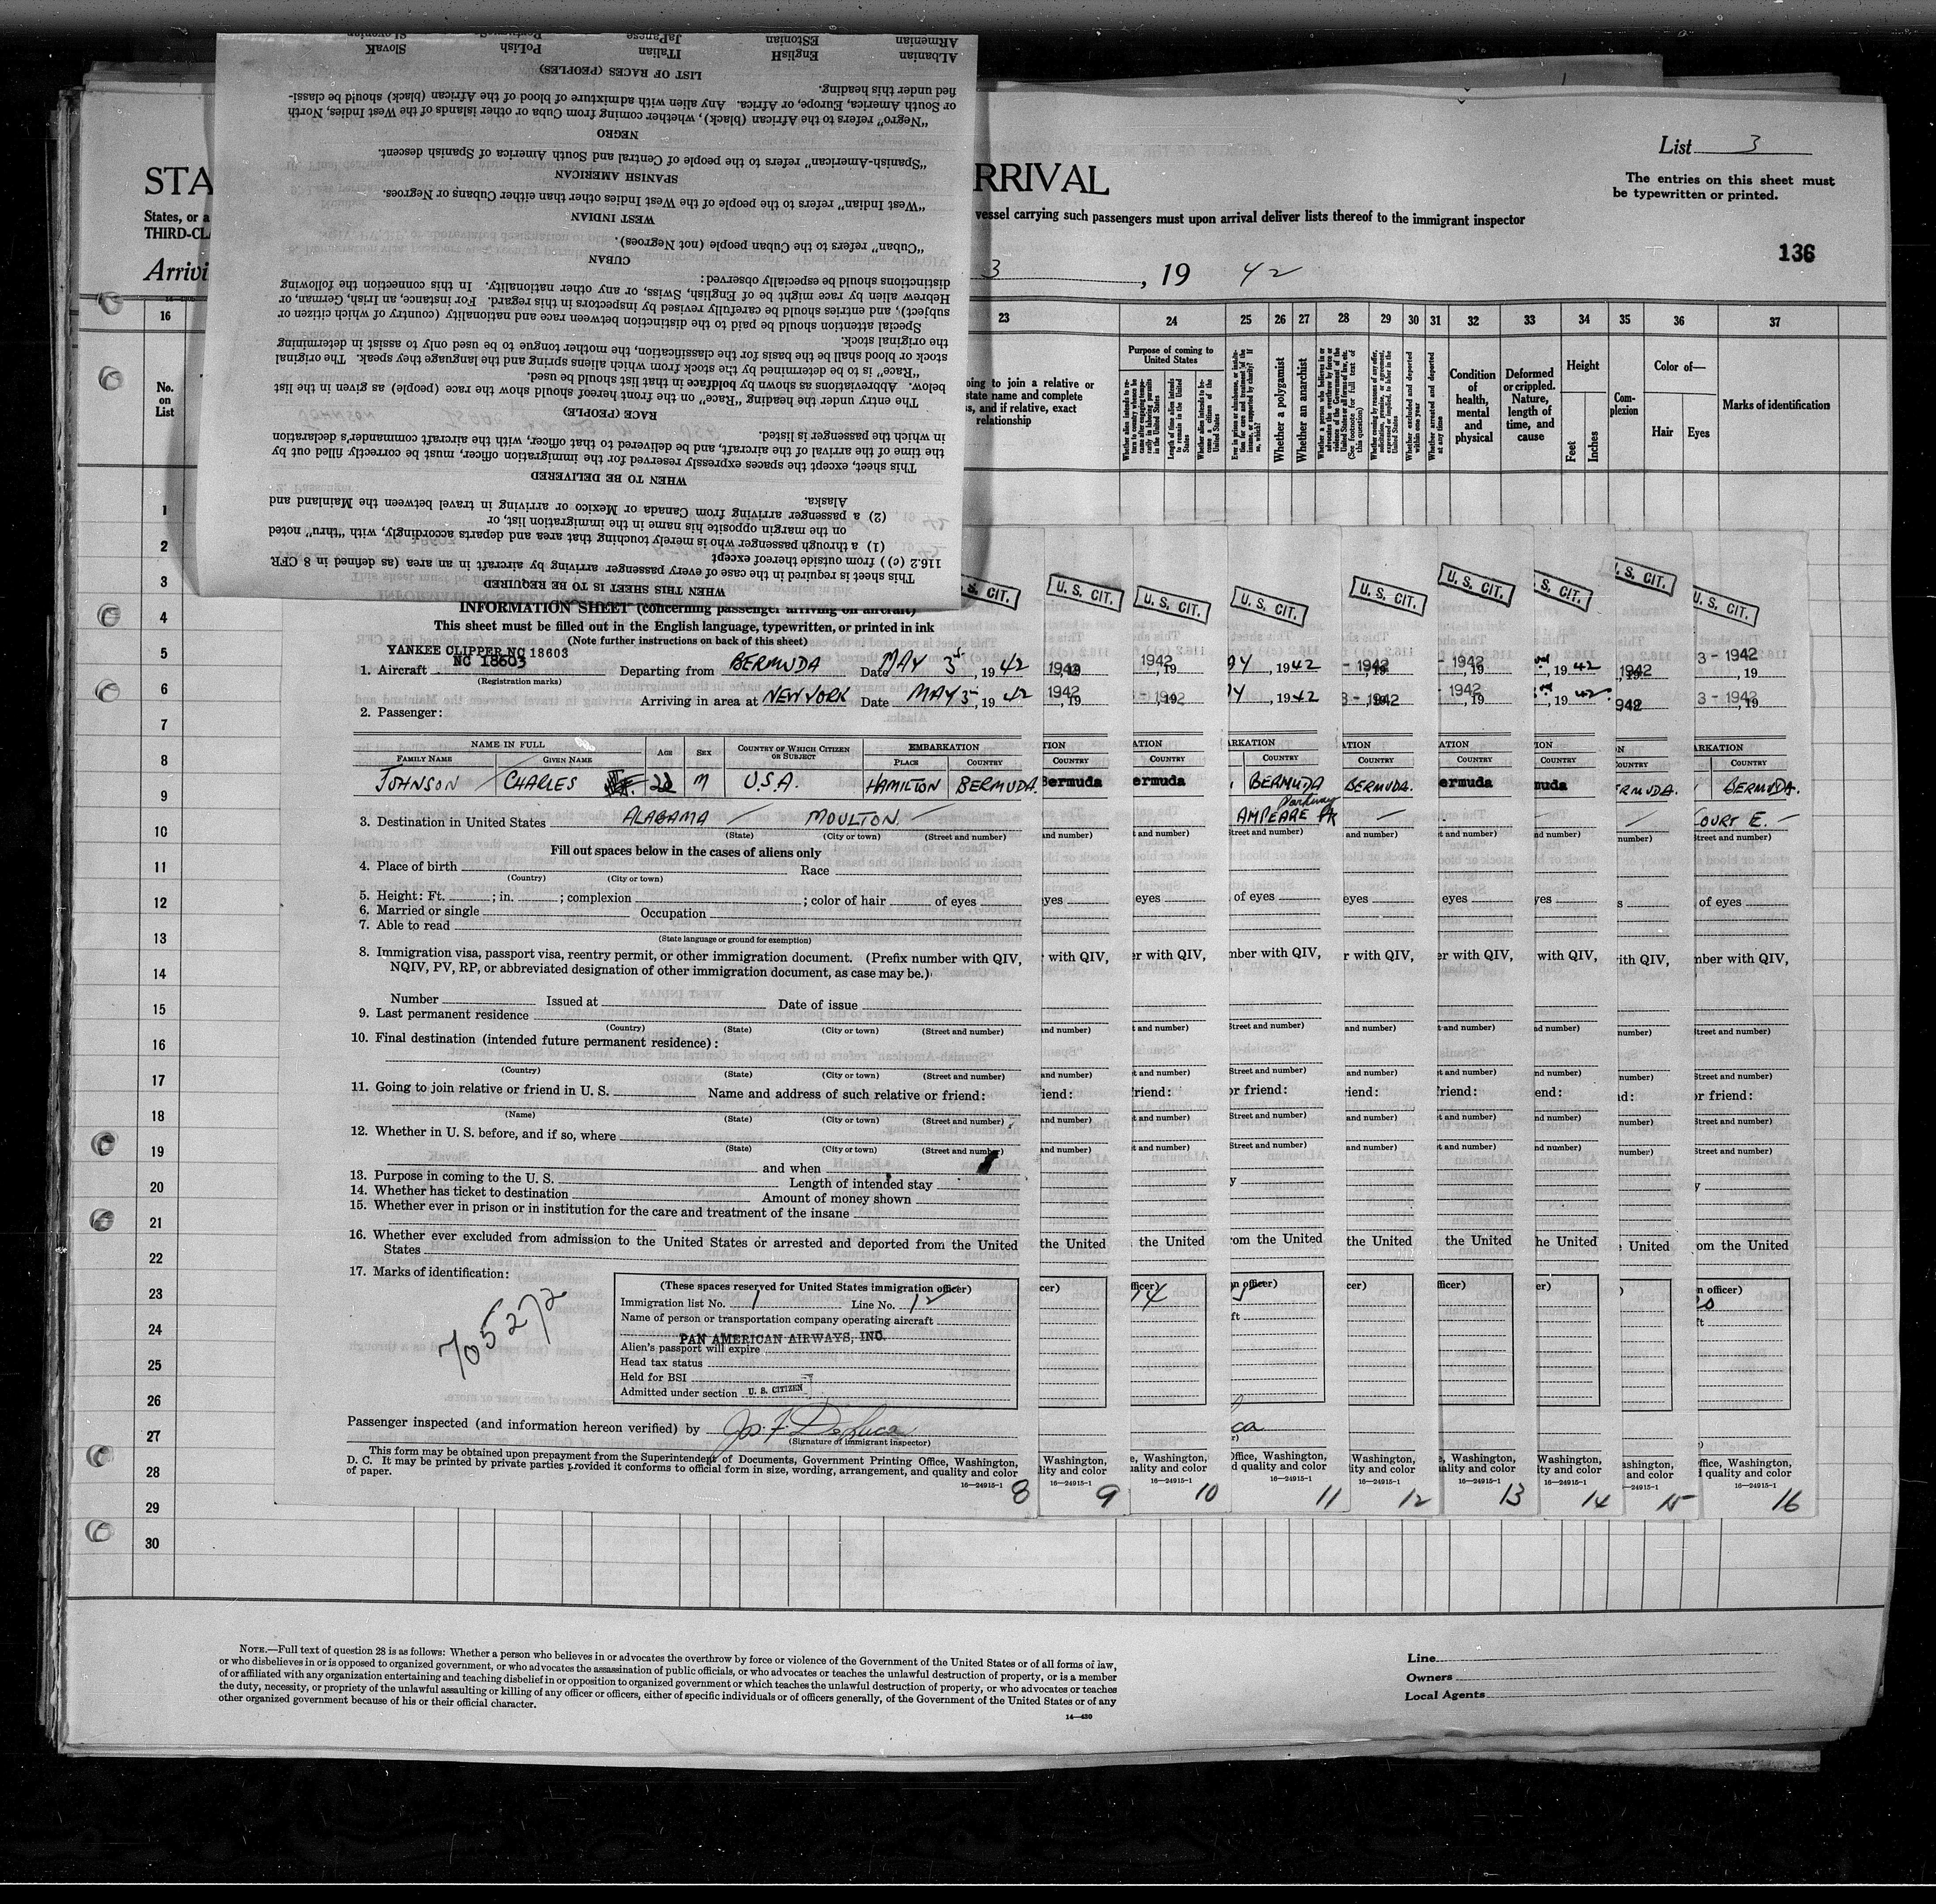 List 3
The entries on this sheet must
be typewritten or printed.
STA
RRIVAL
States, or a
vessel carrying such passengers must upon arrival deliver lists thereof to the immigrant inspector
THIRD-CL
136
Arrivi
3, 19 42
ALbanian EnglisH ITalian PoLish SlovaK
ARmenian EStonian JaPanese
LIST OF RACES (PEOPLES)
"Negro" refers to the African (black), whether coming from Cuba or other islands of the West Indies, North
or South America, Europe, or Africa. Any alien with admixture of blood of the African (black) should be classi-
fied under this heading.
NEGRO
"Spanish-American" refers to the people of Central and South America of Spanish descent.
SPANISH AMERICAN
"West Indian" refers to the people of the West Indies other than either Cubans or Negroes.
WEST INDIAN
"Cuban" refers to the Cuban people (not Negroes).
CUBAN
Special attention should be paid to the distinction between race and nationality (country of which citizen or
subject), and entries should be carefully revised by inspectors in this regard. For instance, an Irish, German, or
Hebrew alien by race might be of English, Swiss, or any other nationality. In this connection the following
distinctions should be especially observed:
"Race" is to be determined by the stock from which aliens spring and the language they speak. The original
stock or blood shall be the basis for the classification, the mother tongue to be used only to assist in determining
the original stock.
The entry under the heading "Race" on the front hereof should show the race (people) as given in the list
below. Abbreviations as shown by boldface in that list should be used.
RACE (PEOPLE)
This sheet, except the spaces expressly reserved for the immigration officer, must be correctly filled out by
the time of the arrival of the aircraft, and be delivered to that officer, with the aircraft commander's declaration
in which the passenger is listed.
WHEN TO BE DELIVERED
(2) a passenger arriving from Canada or Mexico or arriving in travel between the Mainland and
Alaska.
(1) a through passenger who is merely touching that area and departs accordingly, with "thru" noted
on the margin opposite his name in the immigration list, or
This sheet is required in the case of every passenger arriving by aircraft in an area (as defined in 8 CFR
116.2 (c)) from outside thereof except
WHEN THIS SHEET IS TO BE REQUIRED
16 23 24 25 26 27 28 29 30 31 32 33 34 35 36 37
No. on List
oing to join a relative or
state name and complete
s, and if relative, exact
relationship
Purpose of coming to
United States
Whether a polygamist
Whether an anarchist
Condition of health, mental and physical
Deformed or crippled. Nature, length of time, and cause
Height
Feet Inches
Com-plexion
Color of—
Hair Eyes
Marks of identification
1
2
3
4
5
6
7
8
9
10
11
12
13
14
15
16
17
18
19
20
21
22
23
24
25
26
27
28
29
30
INFORMATION SHEET (concerning passenger arriving on aircraft)
This sheet must be filled out in the English language, typewritten, or printed in ink
(Note further instructions on back of this sheet)
YANKEE CLIPPER NC 18603
1. Aircraft NC 18603 Departing from BERMUDA Date MAY 3, 1942
(Registration marks)
Arriving in area at NEW YORK Date MAY 3, 1942
2. Passenger:
NAME IN FULL AGE SEX COUNTRY OF WHICH CITIZEN OR SUBJECT EMBARKATION
FAMILY NAME GIVEN NAME PLACE COUNTRY
JOHNSON CHARLES 22 M U.S.A. HAMILTON BERMUDA
3. Destination in United States ALABAMA MOULTON
(State) (City or town) (Street and number)
Fill out spaces below in the cases of aliens only
4. Place of birth Race
(Country) (City or town)
5. Height: Ft. ; in. ; complexion ; color of hair of eyes
6. Married or single Occupation
7. Able to read
(State language or ground for exemption)
8. Immigration visa, passport visa, reentry permit, or other immigration document. (Prefix number with QIV,
NQIV, PV, RP, or abbreviated designation of other immigration document, as case may be.)
Number Issued at Date of issue
9. Last permanent residence
(Country) (State) (City or town) (Street and number)
10. Final destination (intended future permanent residence):
(Country) (State) (City or town) (Street and number)
11. Going to join relative or friend in U. S. Name and address of such relative or friend:
(Name) (State) (City or town) (Street and number)
12. Whether in U. S. before, and if so, where
(State) (City or town) (Street and number)
and when
13. Purpose in coming to the U. S. Length of intended stay
14. Whether has ticket to destination Amount of money shown
15. Whether ever in prison or in institution for the care and treatment of the insane
16. Whether ever excluded from admission to the United States or arrested and deported from the United
States
17. Marks of identification:
705272
(These spaces reserved for United States immigration officer)
Immigration list No. 1 Line No. 12
Name of person or transportation company operating aircraft
PAN AMERICAN AIRWAYS, INC.
Alien's passport will expire
Head tax status
Held for BSI
Admitted under section U. S. CITIZEN
Passenger inspected (and information hereon verified) by Jos. F. DeLuca
(Signature of immigrant inspector)
This form may be obtained upon prepayment from the Superintendent of Documents, Government Printing Office, Washington,
D. C. It may be printed by private parties provided it conforms to official form in size, wording, arrangement, and quality and color
of paper.
16—24915-1
8 9 10 11 12 13 14 15 16
S. CIT. U. S. CIT. U. S. CIT. U. S. CIT. U. S. CIT. U. S. CIT. S. CIT. U. S. CIT. U. S. CIT.
Bermuda ermuda BERMUDA BERMUDA. ermuda muda RMUDA. BERMUDA.
AMPEARE PK Parkway
COURT E.
NOTE.—Full text of question 28 is as follows: Whether a person who believes in or advocates the overthrow by force or violence of the Government of the United States or of all forms of law,
or who disbelieves in or is opposed to organized government, or who advocates the assassination of public officials, or who advocates or teaches the unlawful destruction of property, or is a member
of or affiliated with any organization entertaining and teaching disbelief in or opposition to organized government or which teaches the unlawful destruction of property, or who advocates or teaches
the duty, necessity, or propriety of the unlawful assaulting or killing of any officer or officers, either of specific individuals or of officers generally, of the Government of the United States or of any
other organized government because of his or their official character.
14—430
Line
Owners
Local Agents